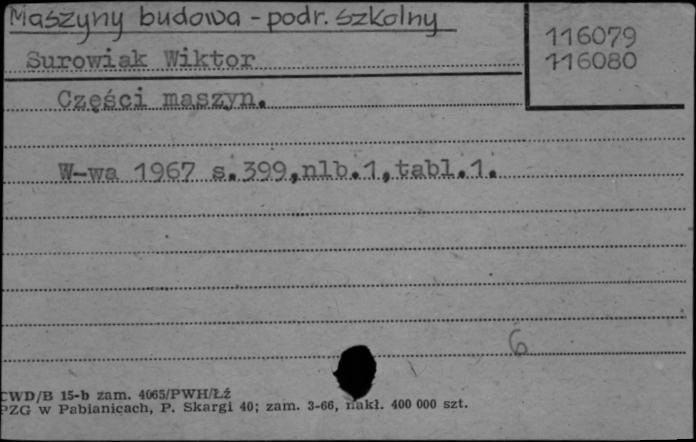 Maszyny budowa - podr. szkolny
116079
Surowiak Wiktor
116080
Części maszyn.
W-wa 1967 s.399,nlb.1,tabl.1.
6
CWD/B 15-b zam. 4065/PWH/Łź
PZG w Pabianicach, P. Skargi 40; zam. 3-66, nakł. 400 000 szt.